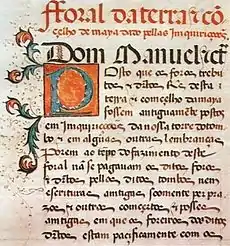 fforal da terra e cõ
celho de maya dito pellas Imquiriçoões
Dom Manuel ect.
Posto que os foros trebu
tos e dirtos desta
terra e comcelho da maya
fossem antigamẽte postos
em Imquiriçoões da nossa torre do tom
bo e em algũas outras lembranças
Porem ao tẽpo do fazimento deste
foral nã se pagauam os ditos foros
e dirtos pellos ditos tonbos nem
escrituras antigas somente per pra
zos e outros comçertos e posses
antigas em que os foreiros dos ditos
dirtos estam pacificamente com os